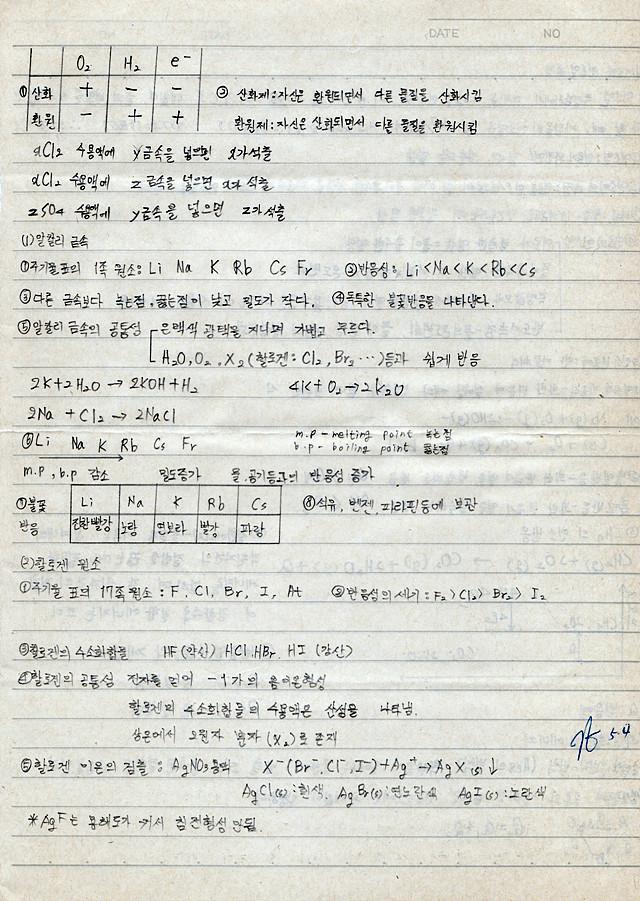 DATE NO
O₂ H₂ e⁻
① 산화 + − − ② 산화제: 자신은 환원되면서 다른 물질을 산화시킴
환원 − + + 환원제: 자신은 산화되면서 다른 물질을 환원시킴
xCl₂ 수용액에 y금속을 넣으면 x가 석출
xCl₂ 수용액에 z금속을 넣으면 x가 석출
zSO₄ 수용액에 y금속을 넣으면 z가 석출
(1) 알칼리 금속
① 주기율표의 1족 원소: Li Na K Rb Cs Fr ② 반응성: Li<Na<K<Rb<Cs
③ 다른 금속보다 녹는점, 끓는점이 낮고 밀도가 작다. ④ 독특한 불꽃반응을 나타낸다.
⑤ 알칼리 금속의 공통성 은백색 광택을 지니며 가볍고 무르다.
H₂O, O₂, X₂(할로겐: Cl₂, Br₂ …)등과 쉽게 반응
2K+2H₂O → 2KOH+H₂ 4K+O₂→2K₂O
2Na + Cl₂ → 2NaCl
⑥ Li Na K Rb Cs Fr m.p - melting point 녹는점
b.p - boiling point 끓는점
m.p, b.p 감소 밀도증가 물, 공기등과의 반응성 증가
⑦ 불꽃 Li Na K Rb Cs ⑧ 석유, 벤젠, 파라핀등에 보관
반응 진한빨강 노랑 연보라 빨강 파랑
(2) 할로겐 원소
① 주기율 표의 17족 원소: F, Cl, Br, I, At ② 반응성의 세기: F₂>Cl₂>Br₂>I₂
③ 할로겐의 수소화합물 HF(약산) HCl, HBr, HI (강산)
④ 할로겐의 공통성 전자를 얻어 -1가의 음이온형성
할로겐의 수소화합물의 수용액은 산성을 나타냄.
상온에서 2원자 분자(X₂)로 존재
⑤ 할로겐 이온의 검출: AgNO₃용액 X⁻(Br⁻ Cl⁻, I⁻)+Ag⁺→AgX(s)↓
AgCl(s): 흰색, AgBr(s): 연노란색 AgI(s): 노란색
*AgF는 용해도가 커서 침전형성 안됨.
5.4